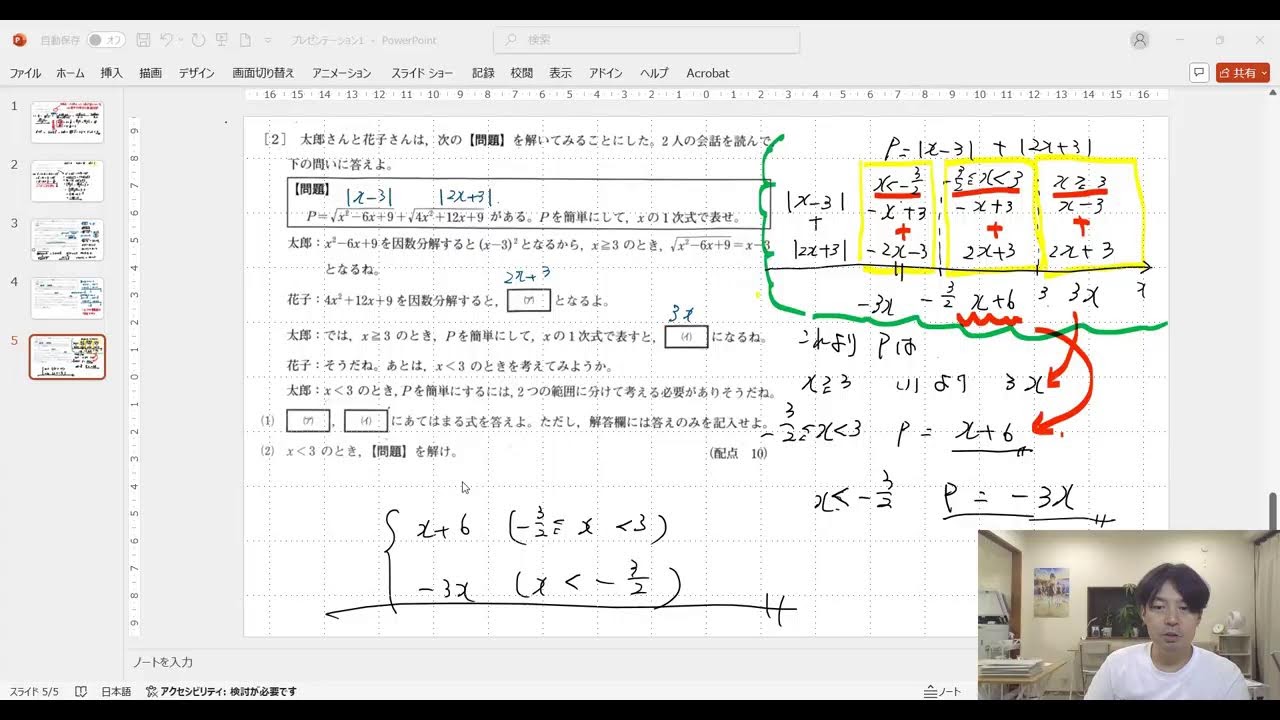 自動保存 オフ プレゼンテーション1 - PowerPoint 検索
ファイル ホーム 挿入 描画 デザイン 画面切り替え アニメーション スライド ショー 記録 校閲 表示 アドイン ヘルプ Acrobat 共有
16 15 14 13 12 11 10 9 8 7 6 5 4 3 2 1 0 1 2 3 4 5 6 7 8 9 10 11 12 13 14 15 16
1
2
3
4
5
9
8
7
6
5
4
3
2
1
0
1
2
3
4
5
6
7
8
9
[2] 太郎さんと花子さんは,次の【問題】を解いてみることにした。2人の会話を読んで
下の問いに答えよ。
【問題】 |x-3| |2x+3|
P=√x²-6x+9+√4x²+12x+9 がある。Pを簡単にして,xの1次式で表せ。
太郎:x²-6x+9を因数分解すると(x-3)²となるから,x≧3のとき,√x²-6x+9=x-3
となるね。
2x+3
花子:4x²+12x+9を因数分解すると, (ア) となるよ。
3x
太郎:では,x≧3のとき,Pを簡単にして,xの1次式で表すと, (イ) になるね。
花子:そうだね。あとは,x<3のときを考えてみようか。
太郎:x<3のとき,Pを簡単にするには,2つの範囲に分けて考える必要がありそうだね。
(1) (ア) , (イ) にあてはまる式を答えよ。ただし,解答欄には答えのみを記入せよ。
(2) x<3のとき,【問題】を解け。 (配点 10)
x+6 (-3/2≦x<3)
-3x (x<-3/2)
P=|x-3| + |2x+3|
x<-3/2 -3/2≦x<3 x≧3
|x-3| -x+3 -x+3 x-3
+ + + +
|2x+3| -2x-3 2x+3 2x+3
-3x -3/2 x+6 3 3x x
これより Pは
x≧3 (1)より 3x
-3/2≦x<3 P= x+6
x<-3/2 P=-3x
ノートを入力
スライド 5/5 日本語 アクセシビリティ: 検討が必要です ノート